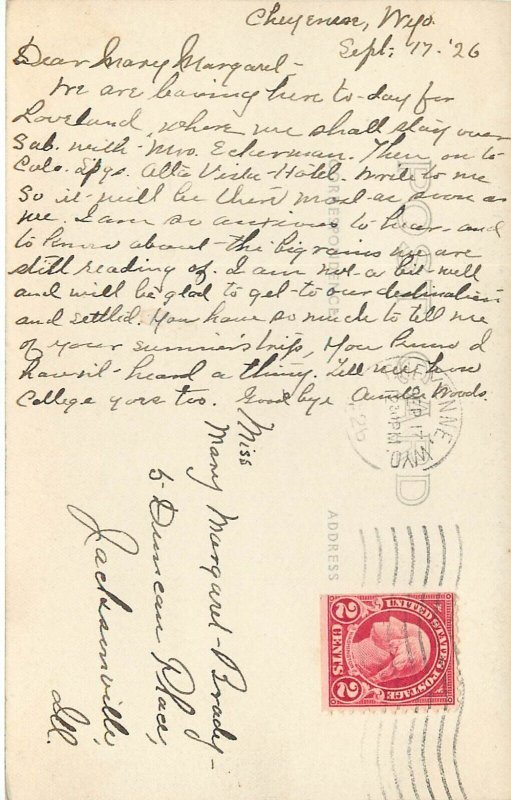 Cheyenne, Wyo.
Sept. 17-'26
Dear Mary Margaret-
We are leaving here to-day for
Loveland, where we shall stay over
Sab. with Mrs. Eckerman. Then on to
Colo. Spgs. Alta Vista Hotel. Write to me
So it will be there most as soon as
me. I am so anxious to hear and
to know about the big rains we are
still reading of. I am not a bit well
and will be glad to get to our destination
and settled. You have so much to tell me
of your summer's trip, You know I
haven't heard a thing. Tell me how
College goes too. Goodbye Woods.
Miss
Mary Margaret Brady-
5-Duncan Place,
Jacksonville,
Ill.
POST CARD
CORRESPONDENCE
ADDRESS
CHEYENNE, WYO.
SEP 17
30 PM
UNITED STATES POSTAGE
2 CENTS 2